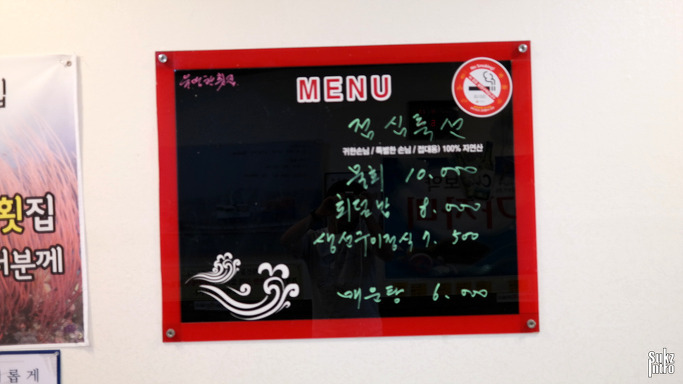 집
횟집
러분께
롭게
MENU
점심특선
귀한손님 / 특별한 손님 / 접대용) 100% 자연산
물회 10.000
회덮밥 8.000
생선구이정식 7.500
매운탕 6.000
Sukz
Intro